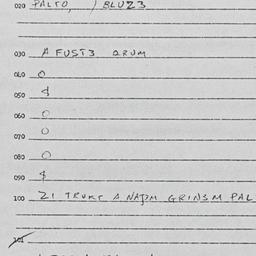 020 PALTO, / BLUZ3
030 A FUST3 DRUM
040 0
050 &
060 0
070 0
080 0
090 &
100 21 TRUKT A NAJIM GRINSM PAL